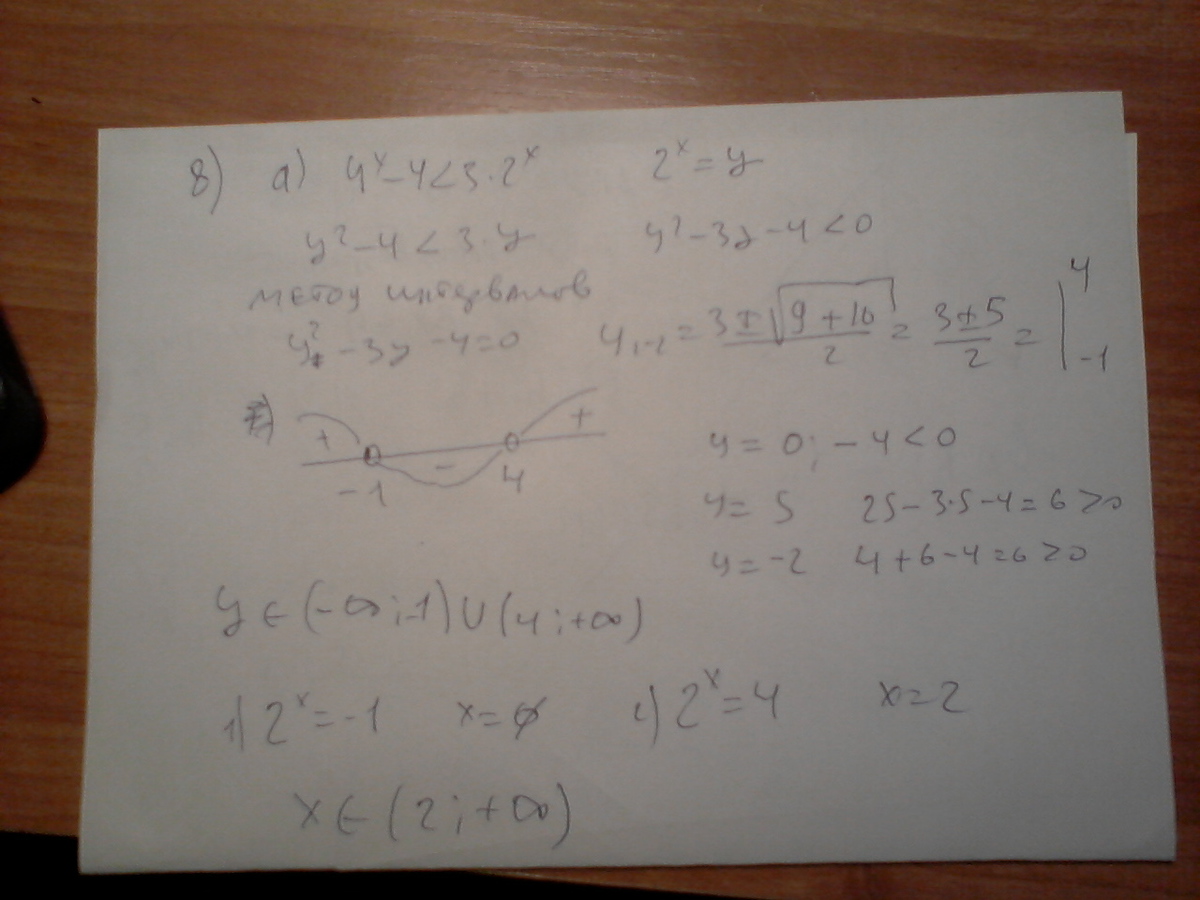 8) а) 4ˣ-4<3·2ˣ 2ˣ=y
y²-4<3·y y²-3y-4<0
метод интервалов
y²-3y-4=0 y₁₋₂=(3±√(9+16))/2=(3±5)/2=|4 -1
+ - +
-1 4
y=0; -4<0
y=5 25-3·5-4=6>0
y=-2 4+6-4=6>0
y∈(-∞;-1)∪(4;+∞)
1) 2ˣ=-1 x=∅ 2) 2ˣ=4 x=2
x∈(2;+∞)